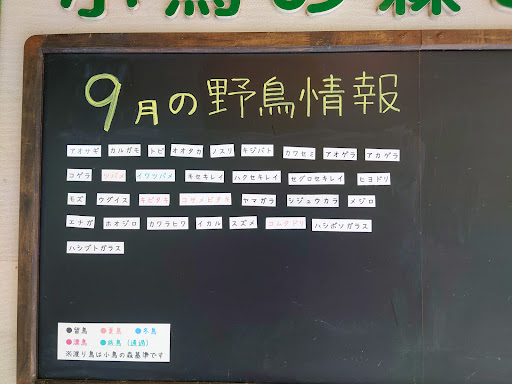 小鳥の森
9月の野鳥情報
アオサギ カルガモ トビ オオタカ ノスリ キジバト カワセミ アオゲラ アカゲラ
コゲラ ツバメ イワツバメ キセキレイ ハクセキレイ セグロセキレイ ヒヨドリ
モズ ウグイス キビタキ コサメビタキ ヤマガラ シジュウカラ メジロ
エナガ ホオジロ カワラヒワ イカル スズメ コムクドリ ハシボソガラス
ハシブトガラス
●留鳥 ●夏鳥 ●冬鳥
●漂鳥 ●旅鳥（通過）
※渡り鳥は小鳥の森基準です